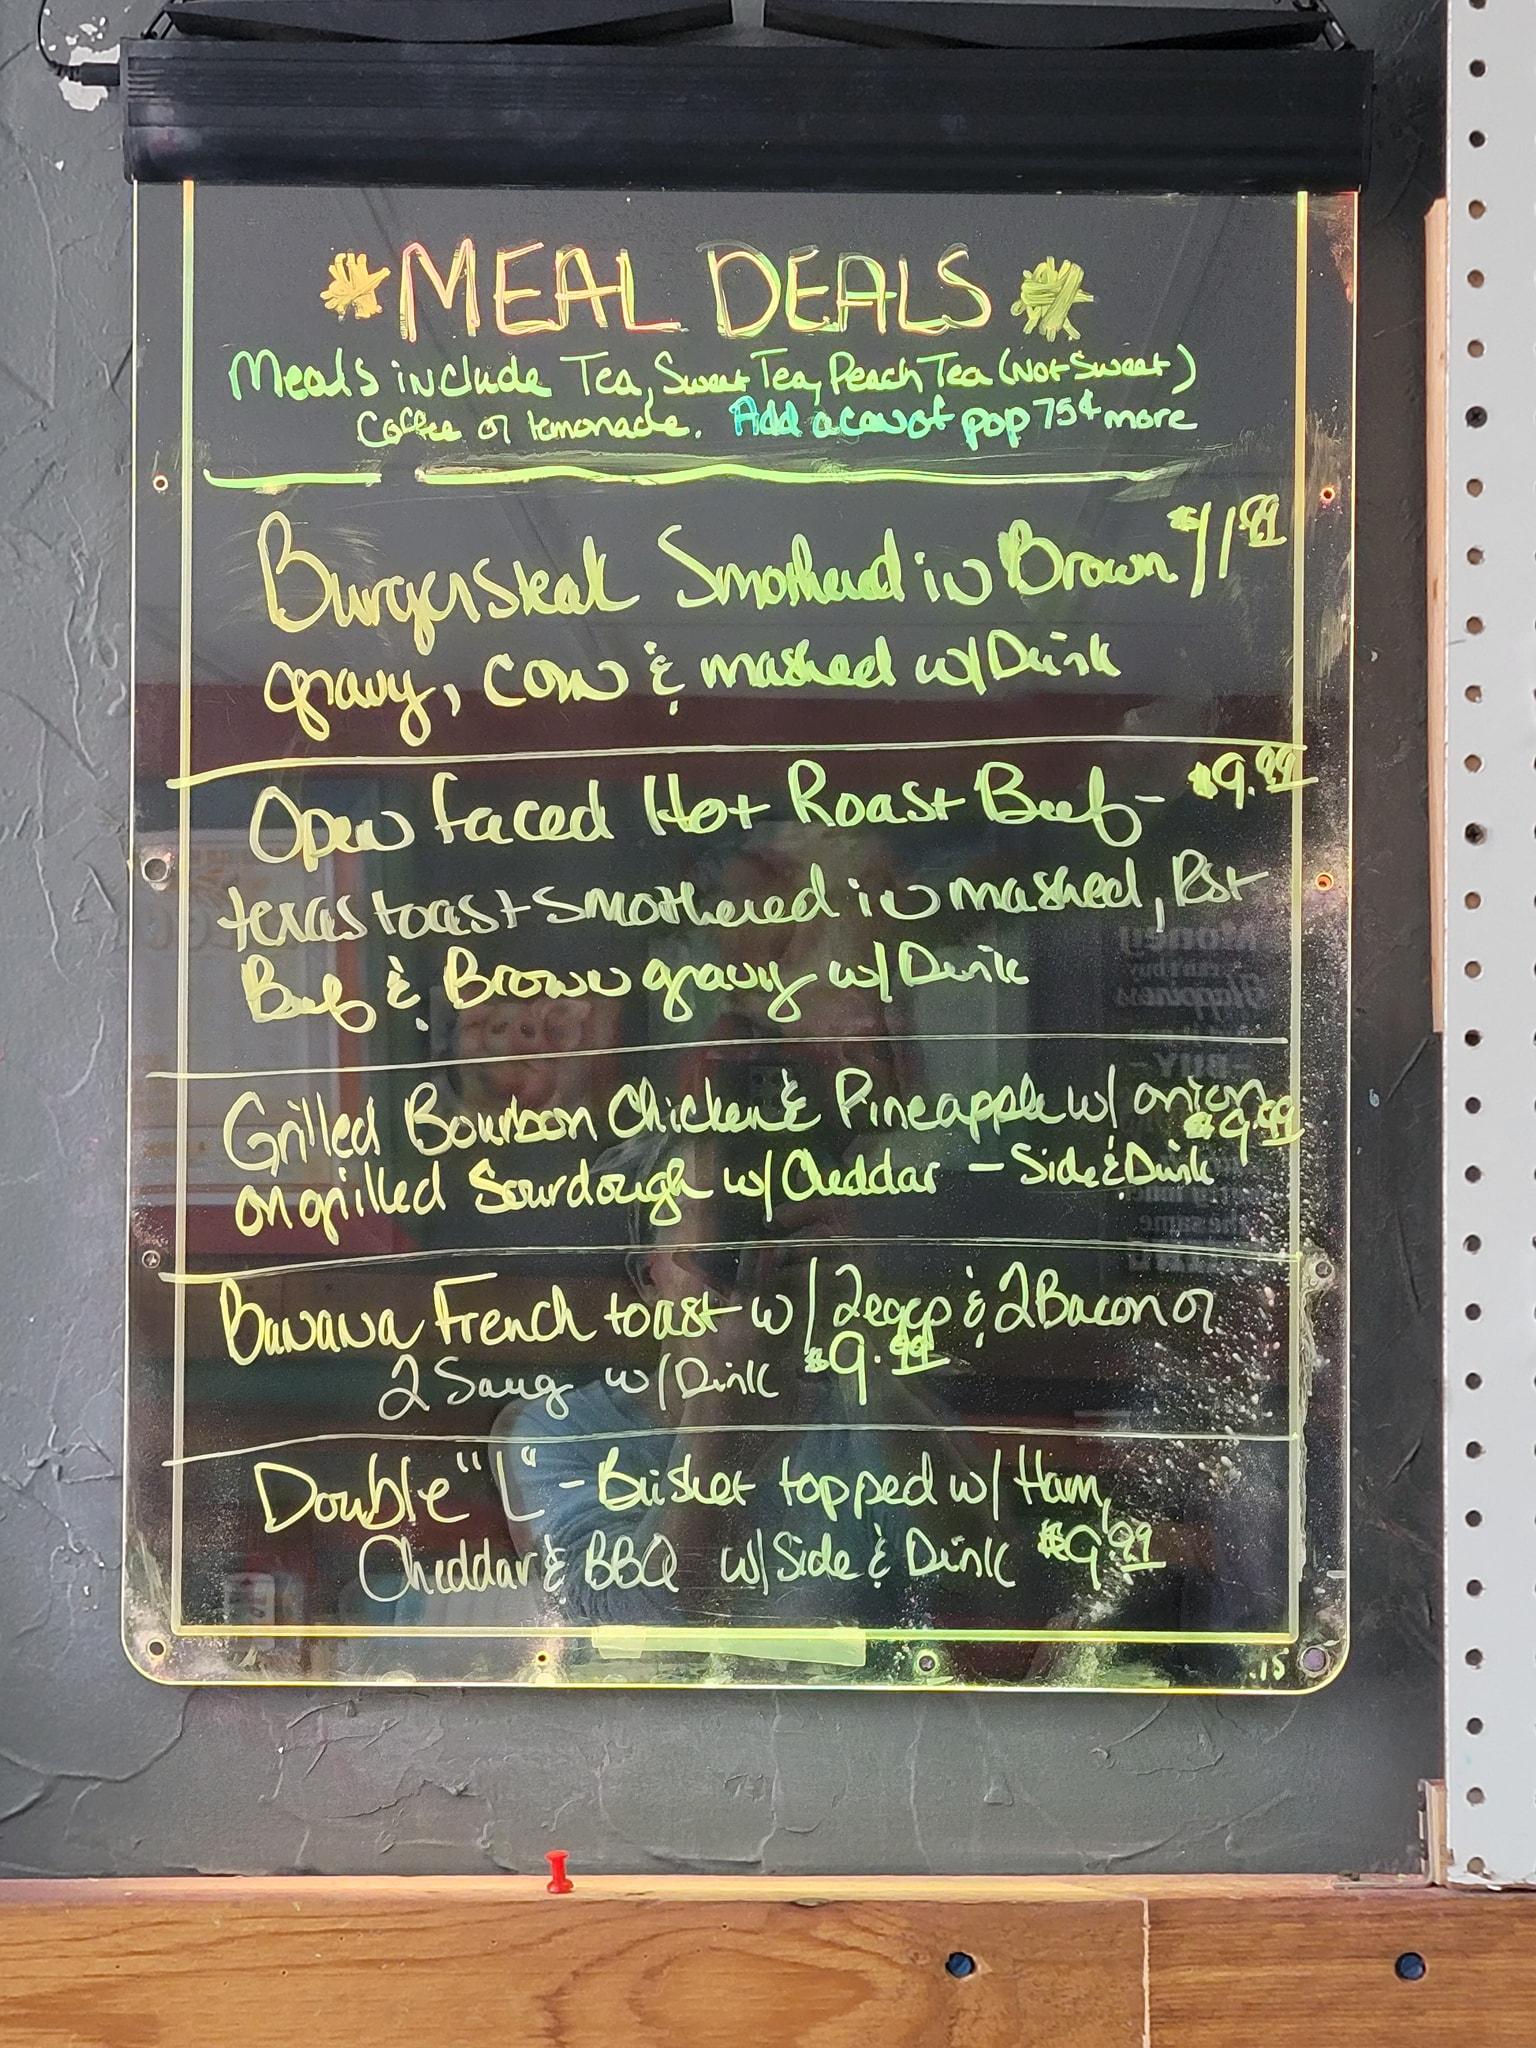 MEAL DEALS
Meals include Tea, Sweet Tea, Peach Tea (Not Sweet)
Coffee or lemonade. Add a can of pop 75¢ more
Burgersteak Smothered in Brown $11.99
gravy, corn & mashed w/Drink
Open faced Hot Roast Beef- $9.99
texas toast smothered in mashed, Rst
Beef & Brown gravy w/Drink
Grilled Bourbon Chicken & Pineapple w/ onion
on grilled Sourdough w/Cheddar - Side & Drink $9.99
Banana French toast w/2eggs & 2Bacon or
2 Saug w/Drink $9.99
Double "L" - Brisket topped w/ Ham,
Cheddar & BBQ w/Side & Drink $9.99
.15
Money
can't buy
Happiness
BUY
the same